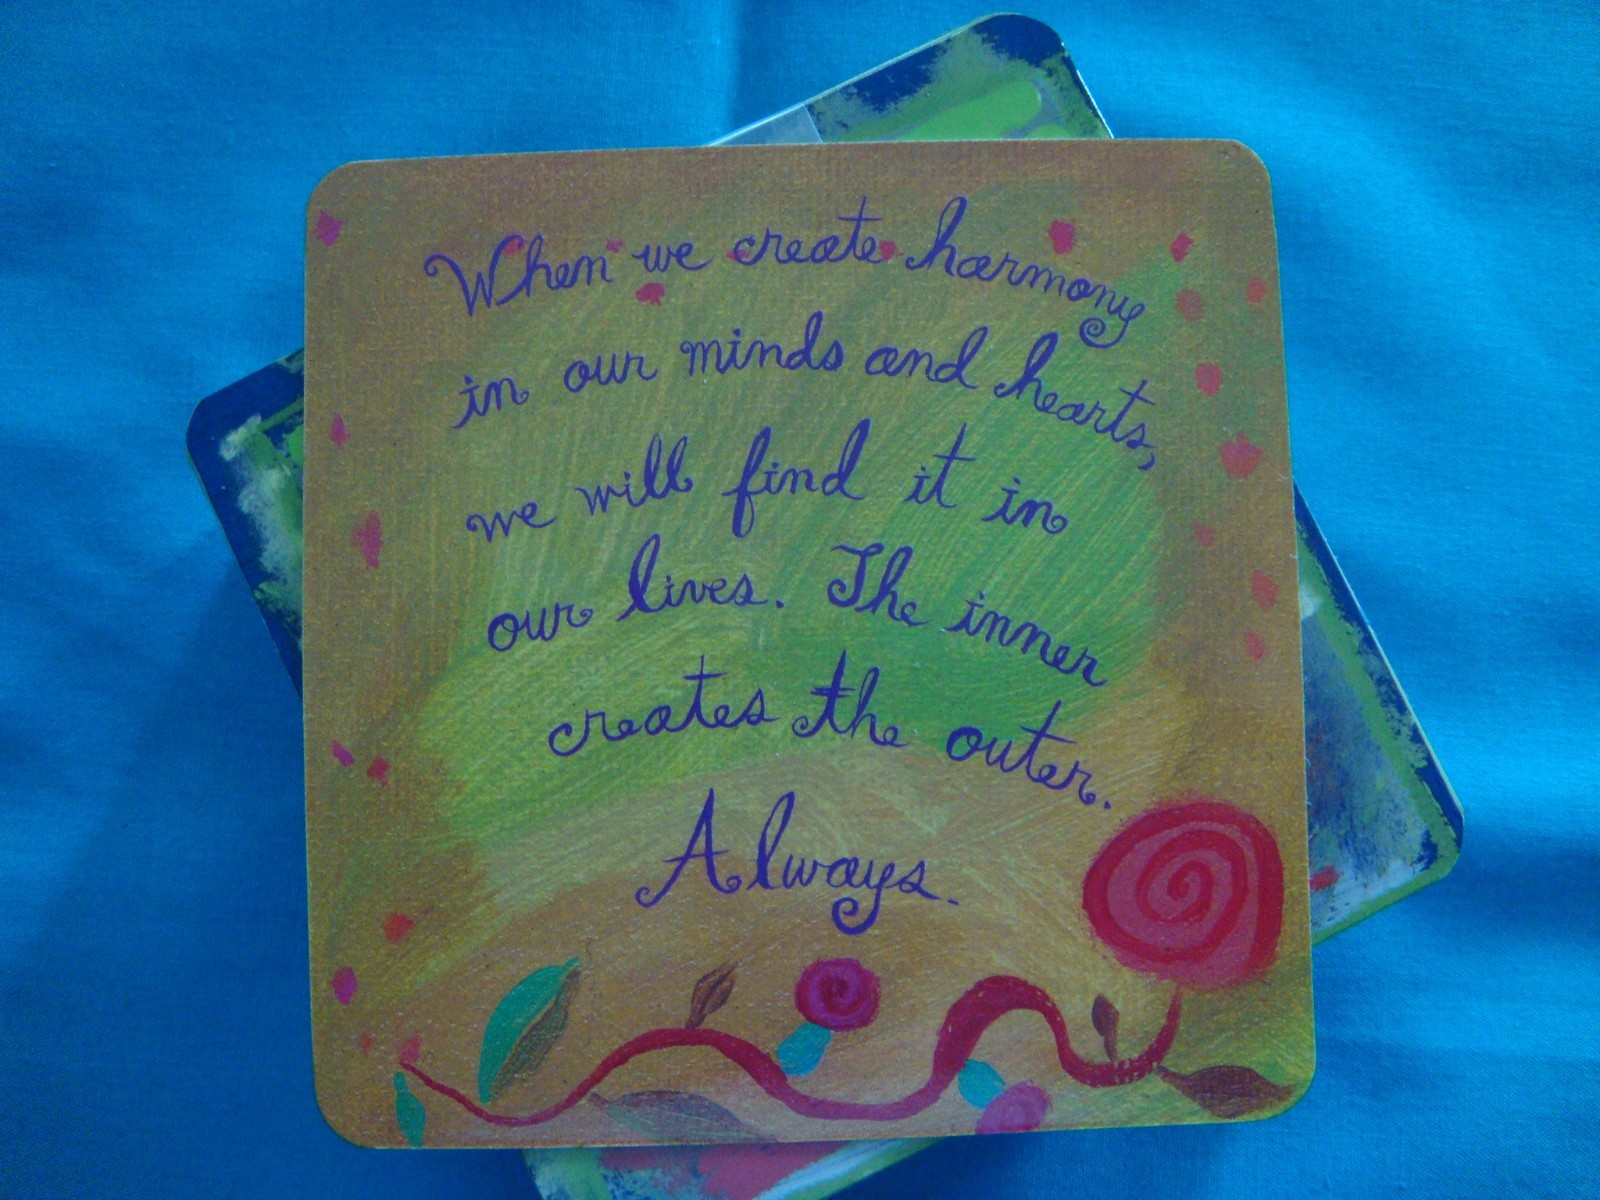 When we create harmony
in our minds and hearts,
we will find it in
our lives. The inner
creates the outer.
Always.